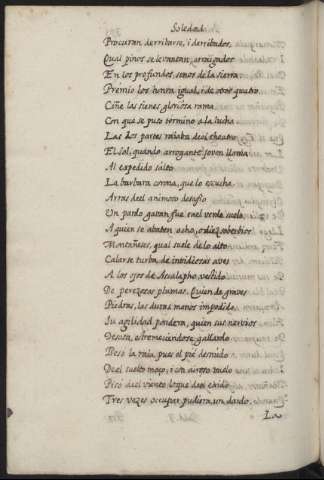 Soledad
Procuran derribarse, i derribados,
Qual pinos se levantan, arraigados
En los profundos senos de la sierra.
Premio los honra igual, i de otros quatro
Ciñe las sienes gloriosa rama
Con que se puso termino a la lucha
Las dos partes raiaba del theatro
El Sol, quando arrogante joven llama
Al expedido salto
La barbara corona, que lo escucha
Arras del animoso desafio
Un pardo gavan fue en el verde suelo
A quien se abaten ocho, o diez sobervios
Montañeses, qual suele de lo alto
Calarse turba de invidiosas aves
A los ojos de Ascalapho, vestido
De perezosas plumas. Quien de graves
Piedras, las duras manos impedido,
Su agilidad pondera, quien sus nervios
Desata, estremeciendose, gallardo
Besò la raia, pues el pie desnudo
Del suelto moço, i con airoso vuelo
Pisò del viento lo que del exido
Tres vezes ocupar pudiera, un dardo.
La